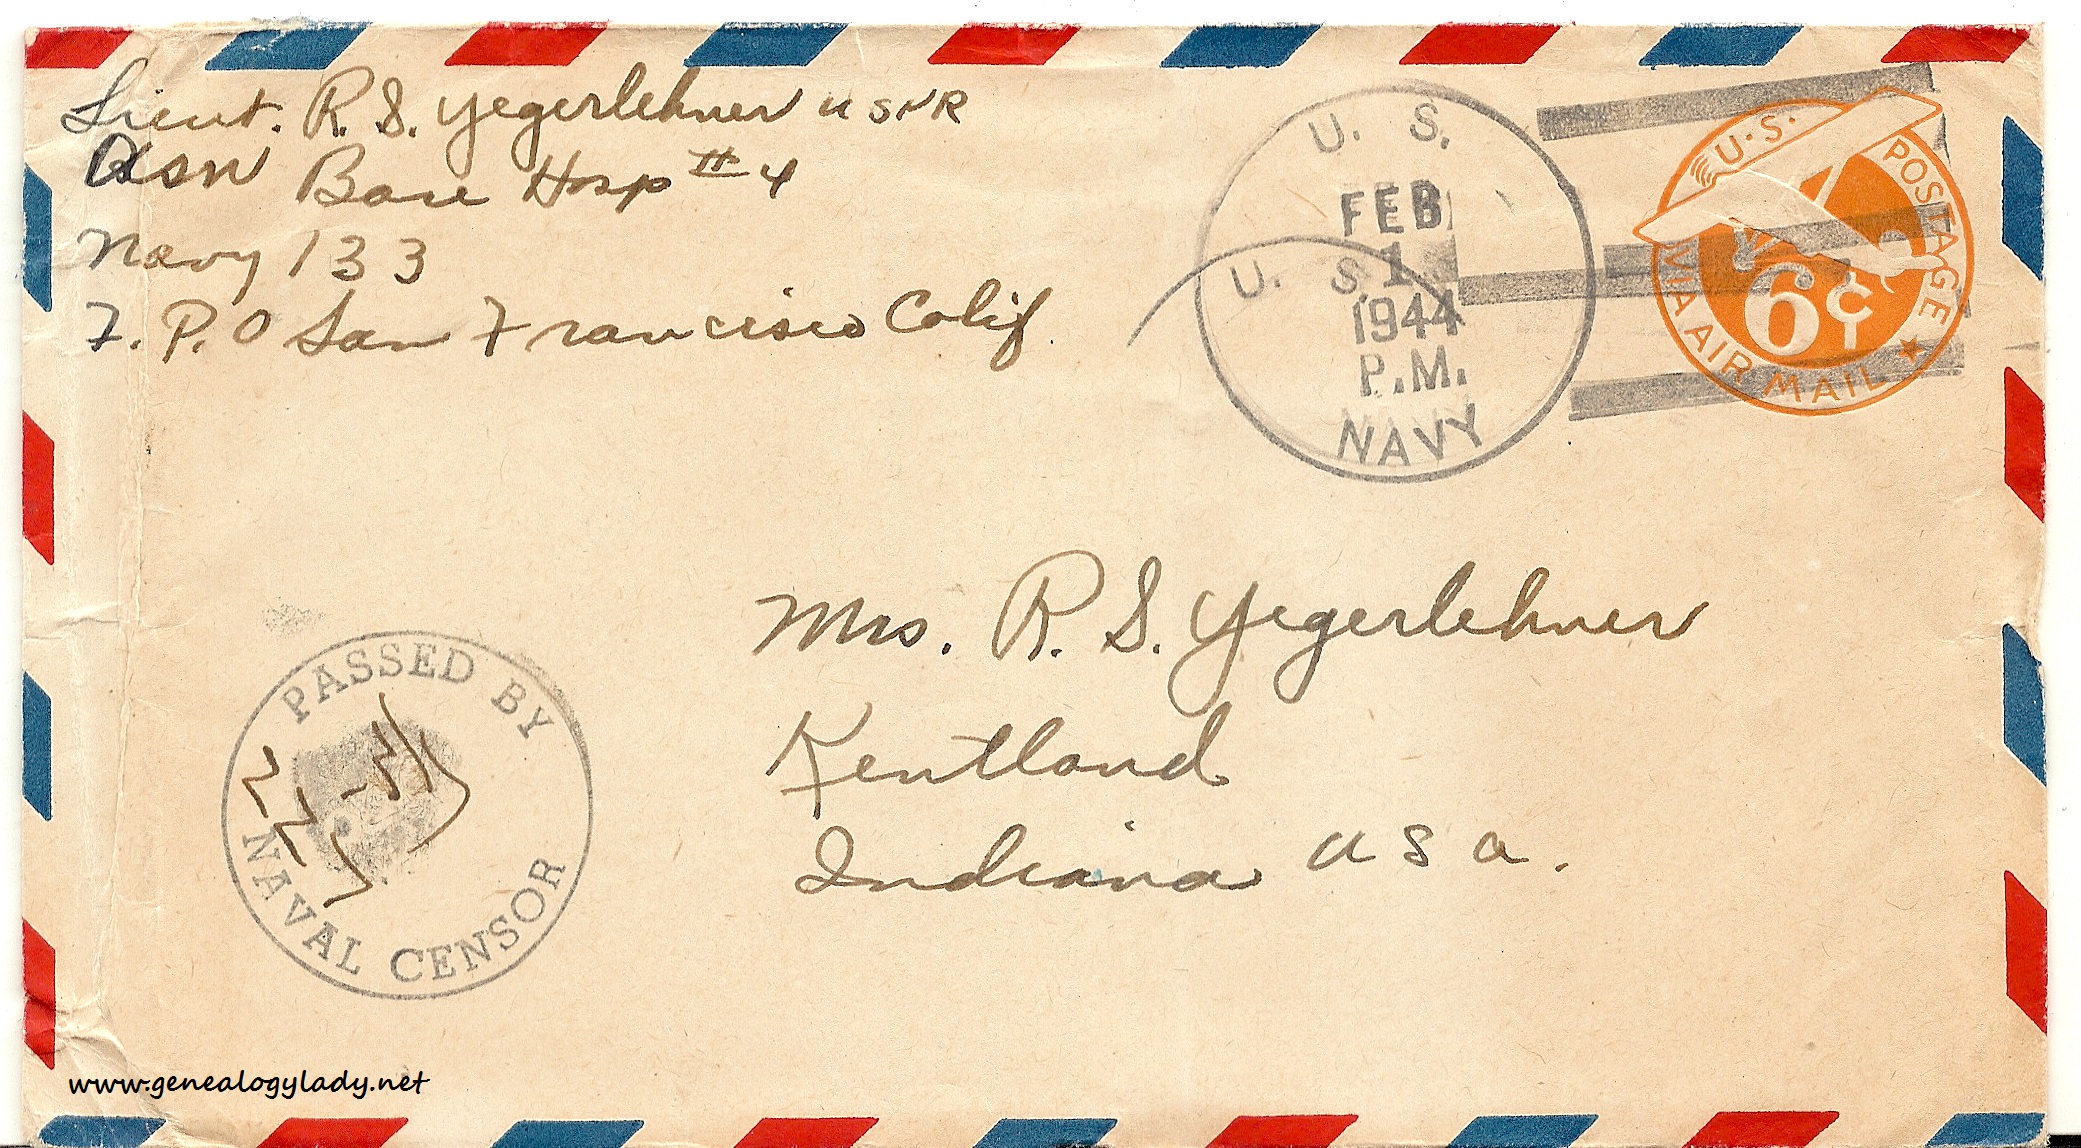 Lieut. R. S. Yegerlehner USNR
USN Base Hosp #4
Navy 133
F. P. O San Francisco Calif.
U. S.
U. S.
FEB
1
1944
P.M.
NAVY
U.S. POSTAGE
6¢
VIA AIR MAIL
Mrs. R. S. Yegerlehner
Kentland
Indiana U S A.
PASSED BY
NAVAL CENSOR
www.genealogylady.net